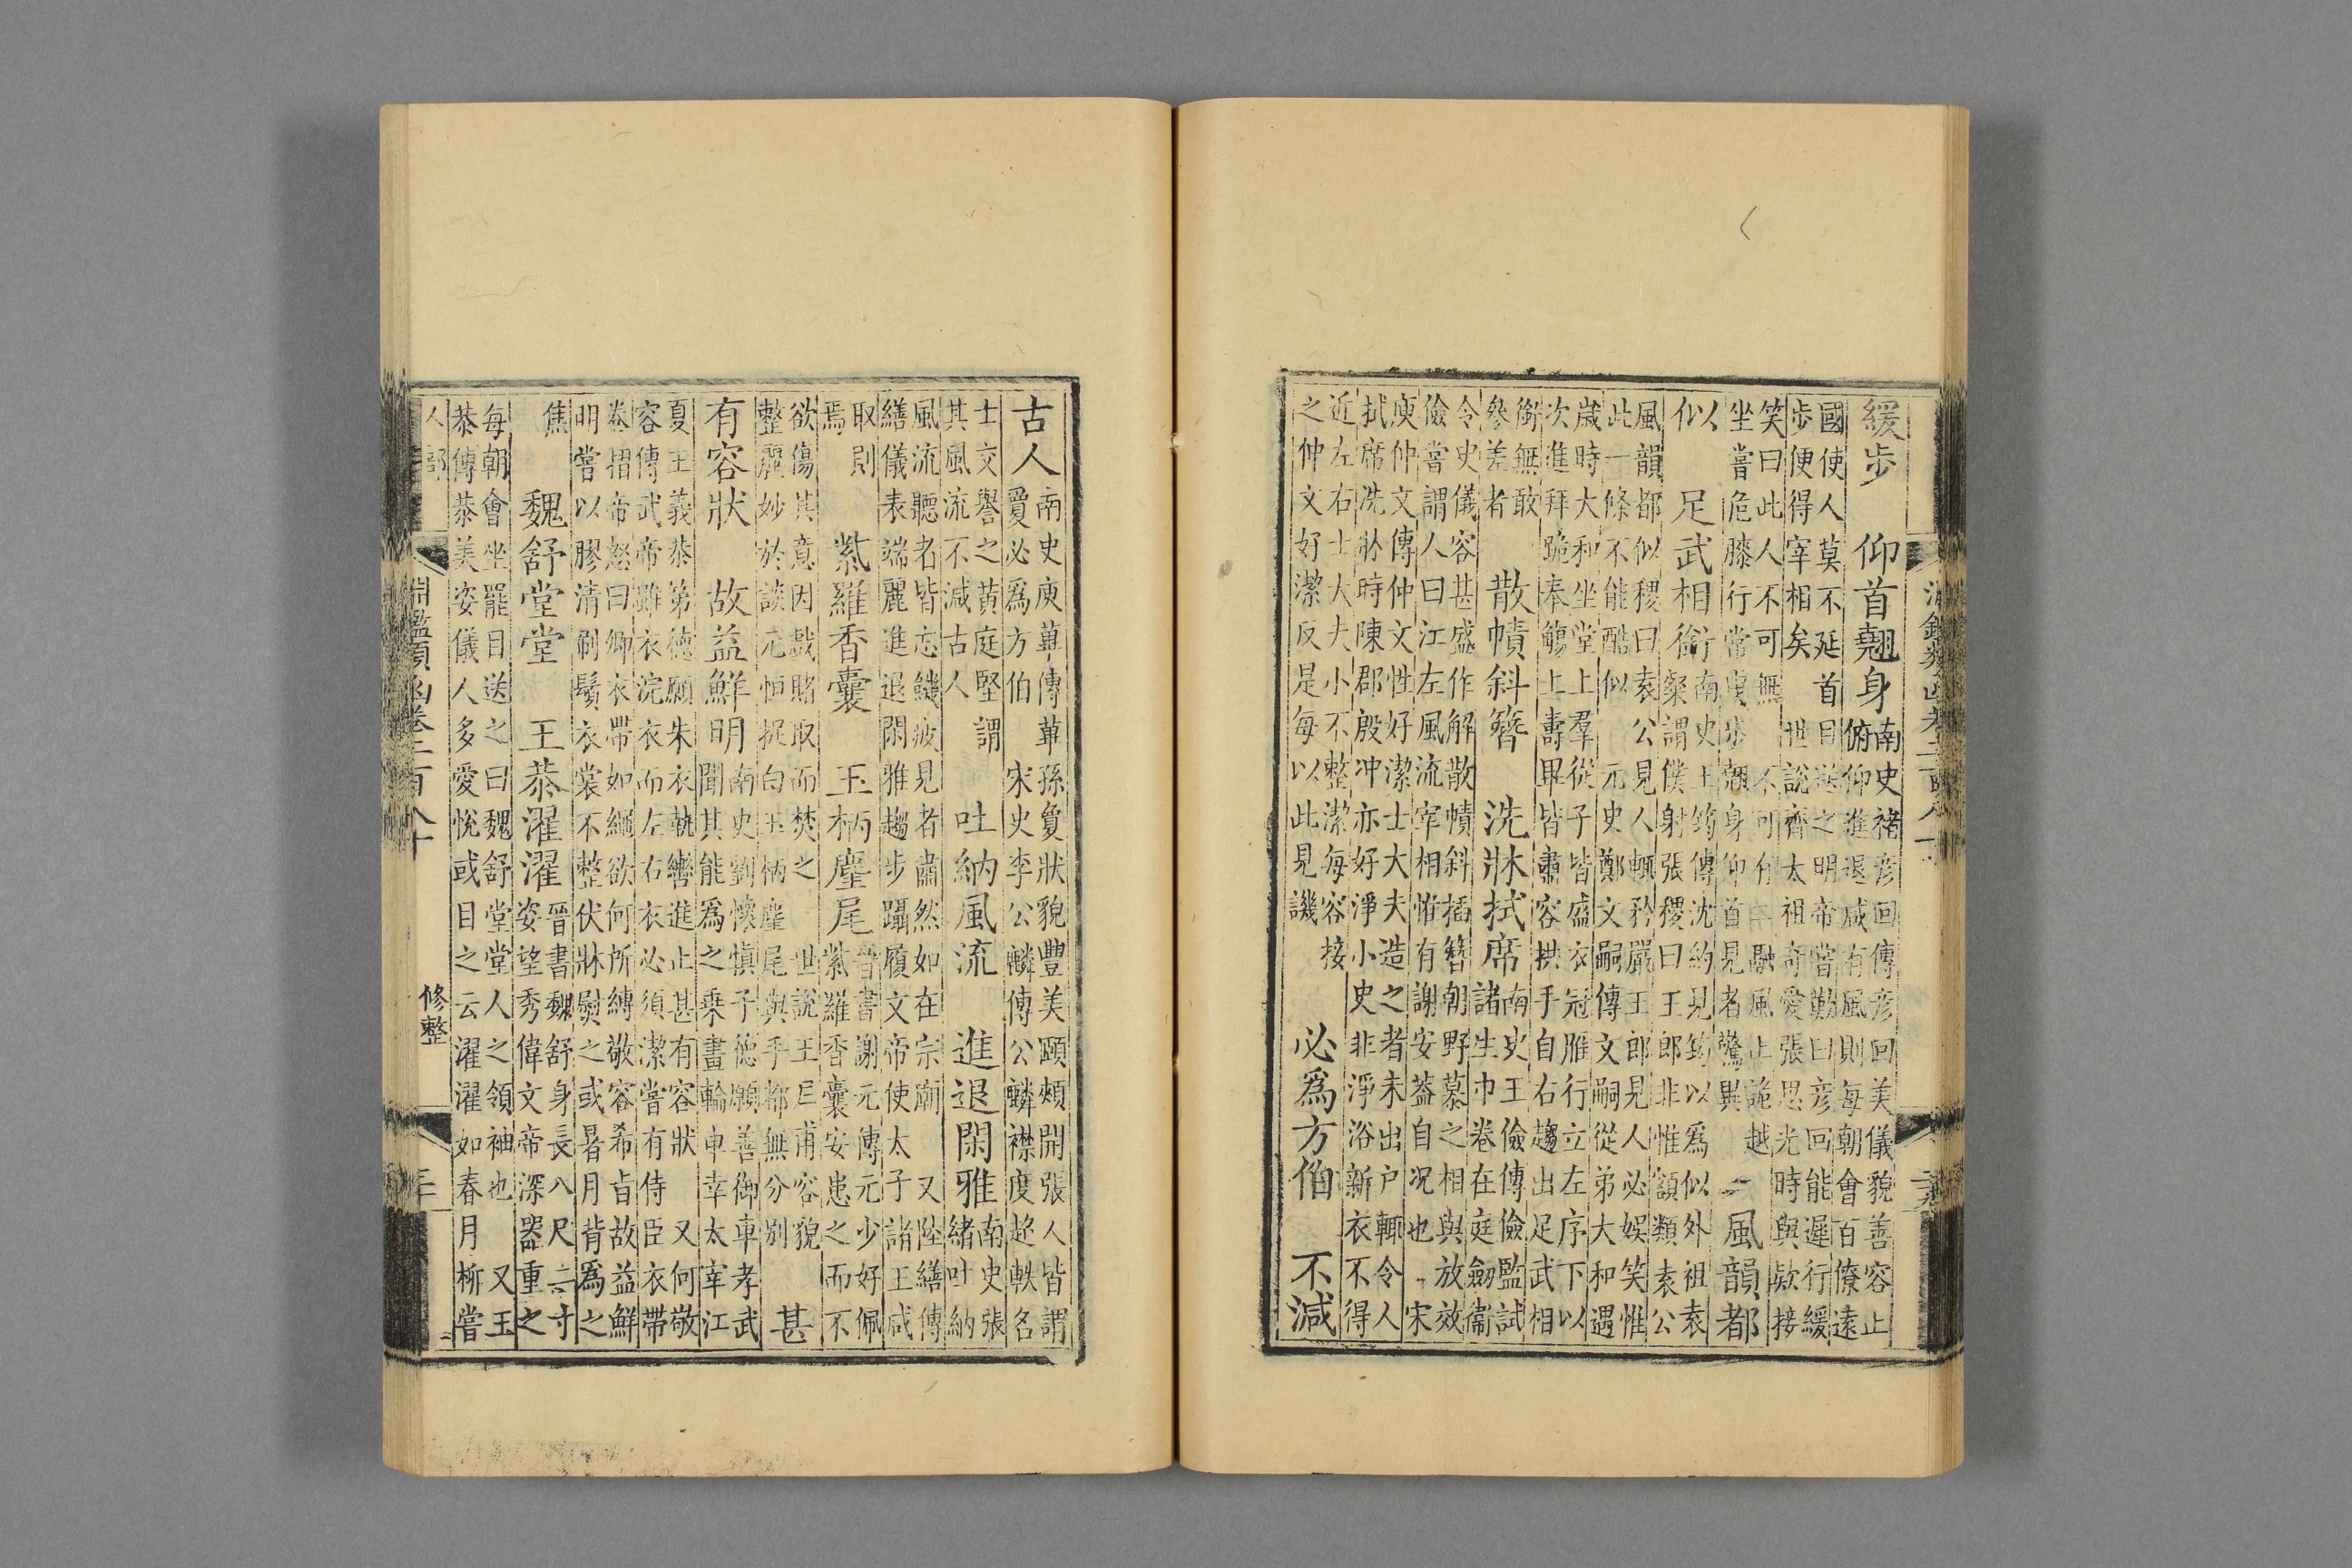 緩步　仰首翹身
南史褚彥回傳彥回美儀貌善容止
俯仰進退咸有風則每朝會百僚遠
國使人莫不延首目送之明帝嘗歎曰彥回能遲行緩
步便得宰相矣　世說齊太祖奇愛張思光時與欵接
笑曰此人不可無　不可有二　融風止詭越
坐嘗危膝行常曳步翹身仰首見者驚異
風韻都
似　足武相銜
南史王筠傳沈約見筠以爲似外祖袁
粲謂僕射張稷曰王郎非惟額類袁公
風韻都似稷曰袁公見人輒矜嚴王郎見人必娛笑惟
此一條不能酷似　元史鄭文嗣傳文嗣從弟大和遇
歲時大和坐堂上羣從子皆盛衣冠雁行立左序下以
次進拜跪奉觴上壽畢皆肅容拱手自右趨出足武相
銜無敢
參差者
散幘斜簪　洗牀拭席
南史王儉傳儉監試
諸生巾卷在庭劒衞
令史儀容甚盛作解散幘斜插簪朝野慕之相與放效
儉嘗謂人曰江左風流宰相惟有謝安蓋自况也　宋
庾仲文傳仲文性好潔士大夫造之者未出户輒令人
拭席洗牀時陳郡殷冲亦好淨小史非淨浴新衣不得
近左右士大夫小不整潔每容接
之仲文好潔反是每以此見譏
必爲方伯　不減
淵鑑類函卷二百八十
古人
南史庾蓽傳蓽孫敻狀貌豐美頤頰開張人皆謂
敻必爲方伯　宋史李公麟傳公麟襟度超軼名
士交譽之黄庭堅謂
其風流不減古人
吐納風流　進退閑雅
南史張
緒吐納
風流聽者皆忘饑疲見者肅然如在宗廟　又陸繕傳
繕儀表端麗進退閑雅趨步躡履文帝使太子諸王咸
取則
焉
紫羅香囊　玉柄麈尾
晉書謝元傳元少好佩
紫羅香囊安患之而不
欲傷其意因戲賭取而焚之　世說王巨甫容貌
整麗妙於談元恒捉白玉柄麈尾與手都無分別
甚
有容狀　故益鮮明
南史劉懷慎子德願善御車孝武
聞其能爲之乗畫輪車幸太宰江
夏王義恭第德願朱衣執轡進止甚有容狀　又何敬
容傳武帝雖衣浣衣而左右衣必須潔嘗有侍臣衣帶
卷摺帝怒曰卿衣帶如繩欲何所縛敬容希旨故益鮮
明嘗以膠清刷鬚衣裳不整伏牀熨之或暑月背爲之
焦
魏舒堂堂　王恭濯濯
晉書魏舒身長八尺二寸
姿望秀偉文帝深器重之
每朝會坐罷目送之曰魏舒堂堂人之領袖也　又王
恭傳恭美姿儀人多愛悅或目之云濯濯如春月柳嘗
人部
淵鑑類函卷二百八十
修整